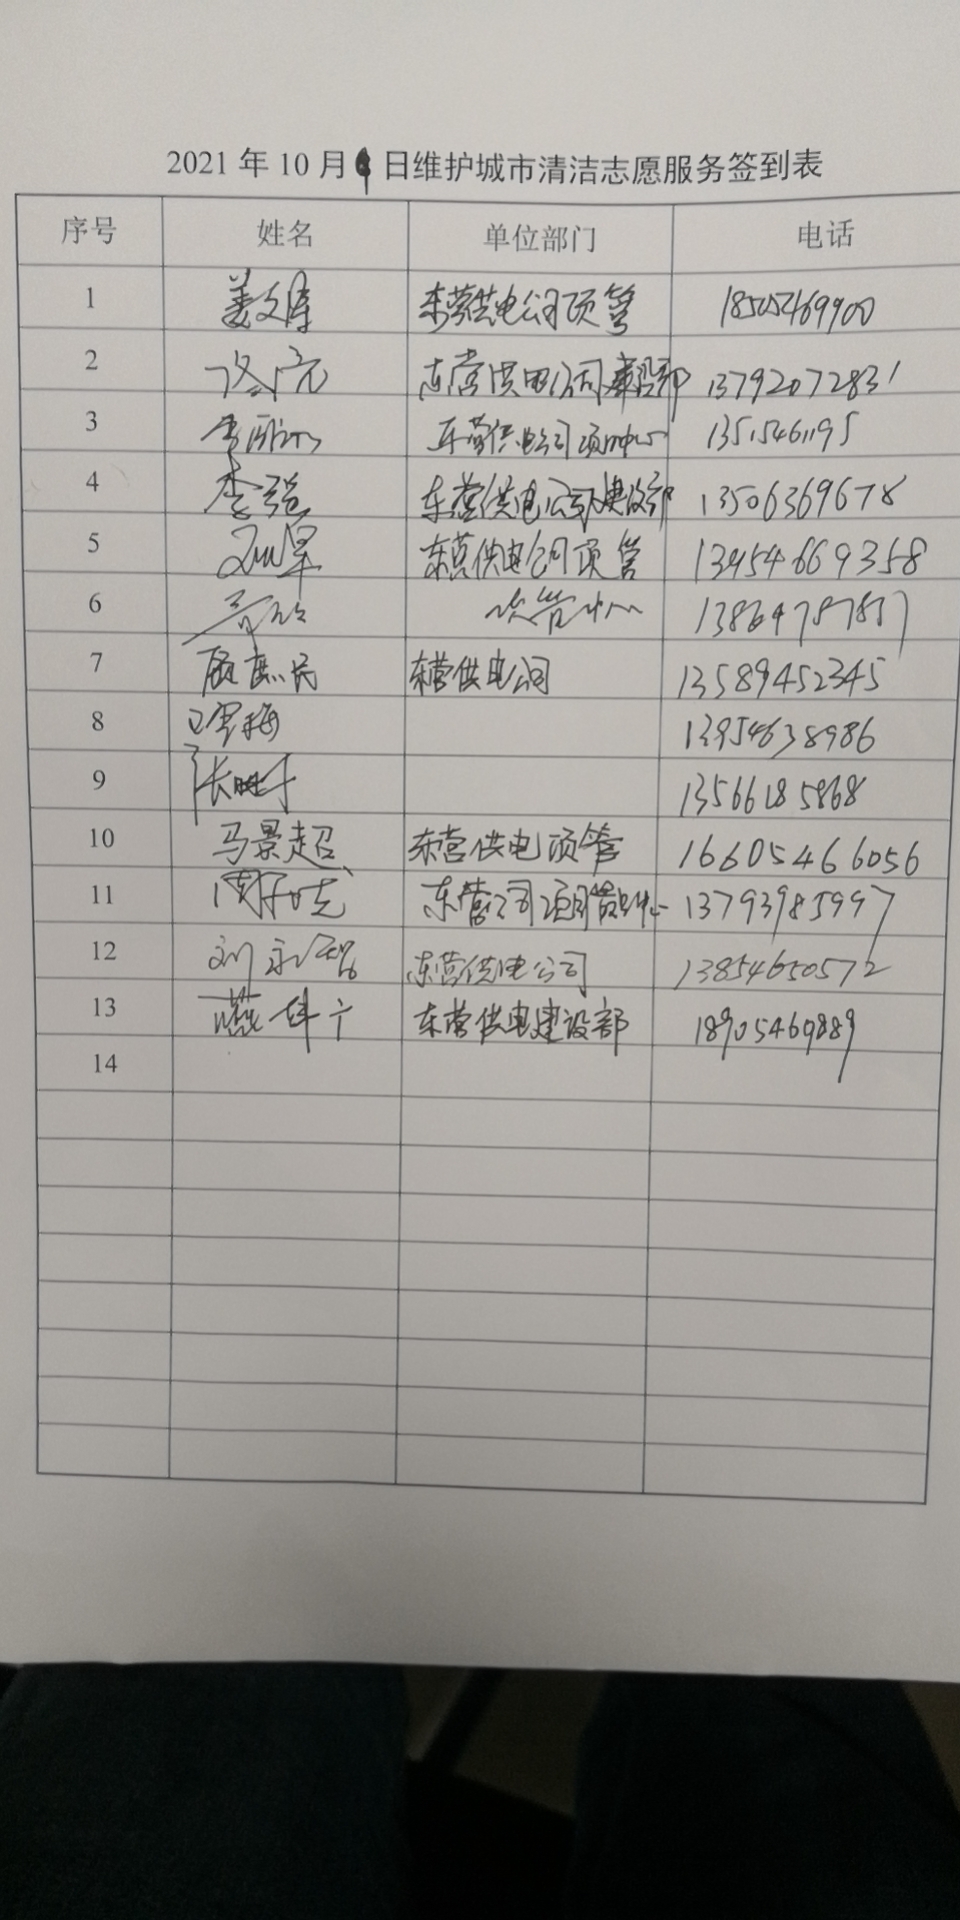 2021 年 10 月 日维护城市清洁志愿服务签到表
序号 姓名 单位部门 电话
1 姜文库 东营供电公司项管 18505469900
2 东营供电公司建设部 13792072831
3 东营供电公司项目中心 13515461195
4 李强 东营供电公司建设部 13506369678
5 东营供电公司项管 13954669358
6 项管中心
7 顾庶民 东营供电公司 13589452345
8 13954638986
9 13566185868
10 马景超 东营供电项管 16605466056
11 东营公司项目管理中心 13793985997
12 刘永智 东营供电公司 13854650572
13 东营供电建设部 18905469889
14